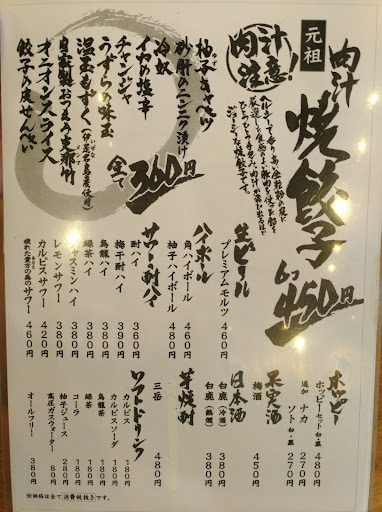 元祖
肉汁
焼餃子
6コ 450円
肉汁注意!
柚子キャベツ
砂肝のニンニク漬け
冷奴
イカの塩辛
チャンジャ
うずらの味玉
温玉もずく(伊是名島産使用)
自家製おつまみ支那竹
オニオンスライス
餃子の皮せんべい
全て 360円
ホッピー
ホッピーセット 白・黒 480円
追加 ナカ 270円
ソト 白・黒 270円
果実酒
梅酒 450円
日本酒
白鹿(冷酒) 380円
白鹿(熱燗) 380円
芋焼酎
三岳 480円
ソフトドリンク
カルピス 180円
カルピスソーダ 180円
烏龍茶 180円
緑茶 180円
コーラ 180円
柚子ジュース 280円
高圧ガスウォーター 80円
オールフリー 380円
生ビール
プレミアムモルツ 460円
ハイボール
角ハイボール 460円
柚子ハイボール 480円
サワー・酎ハイ
酎ハイ 360円
梅干酎ハイ 390円
烏龍ハイ 380円
緑茶ハイ 380円
ジャスミンハイ 380円
レモンサワー 380円
カルピスサワー 420円
疲れた貴方の為のサワー 460円
※価格は全て消費税抜きです。